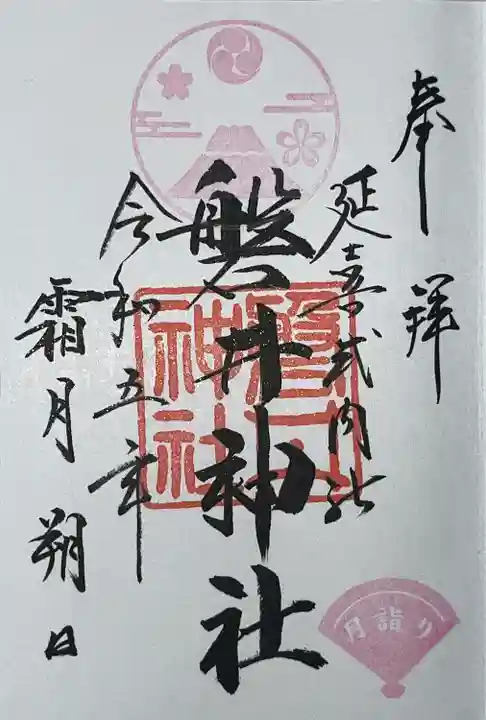 奉拝
延喜式内社
磐井神社
磐井神社
令和五年
霜月朔日
月詣り